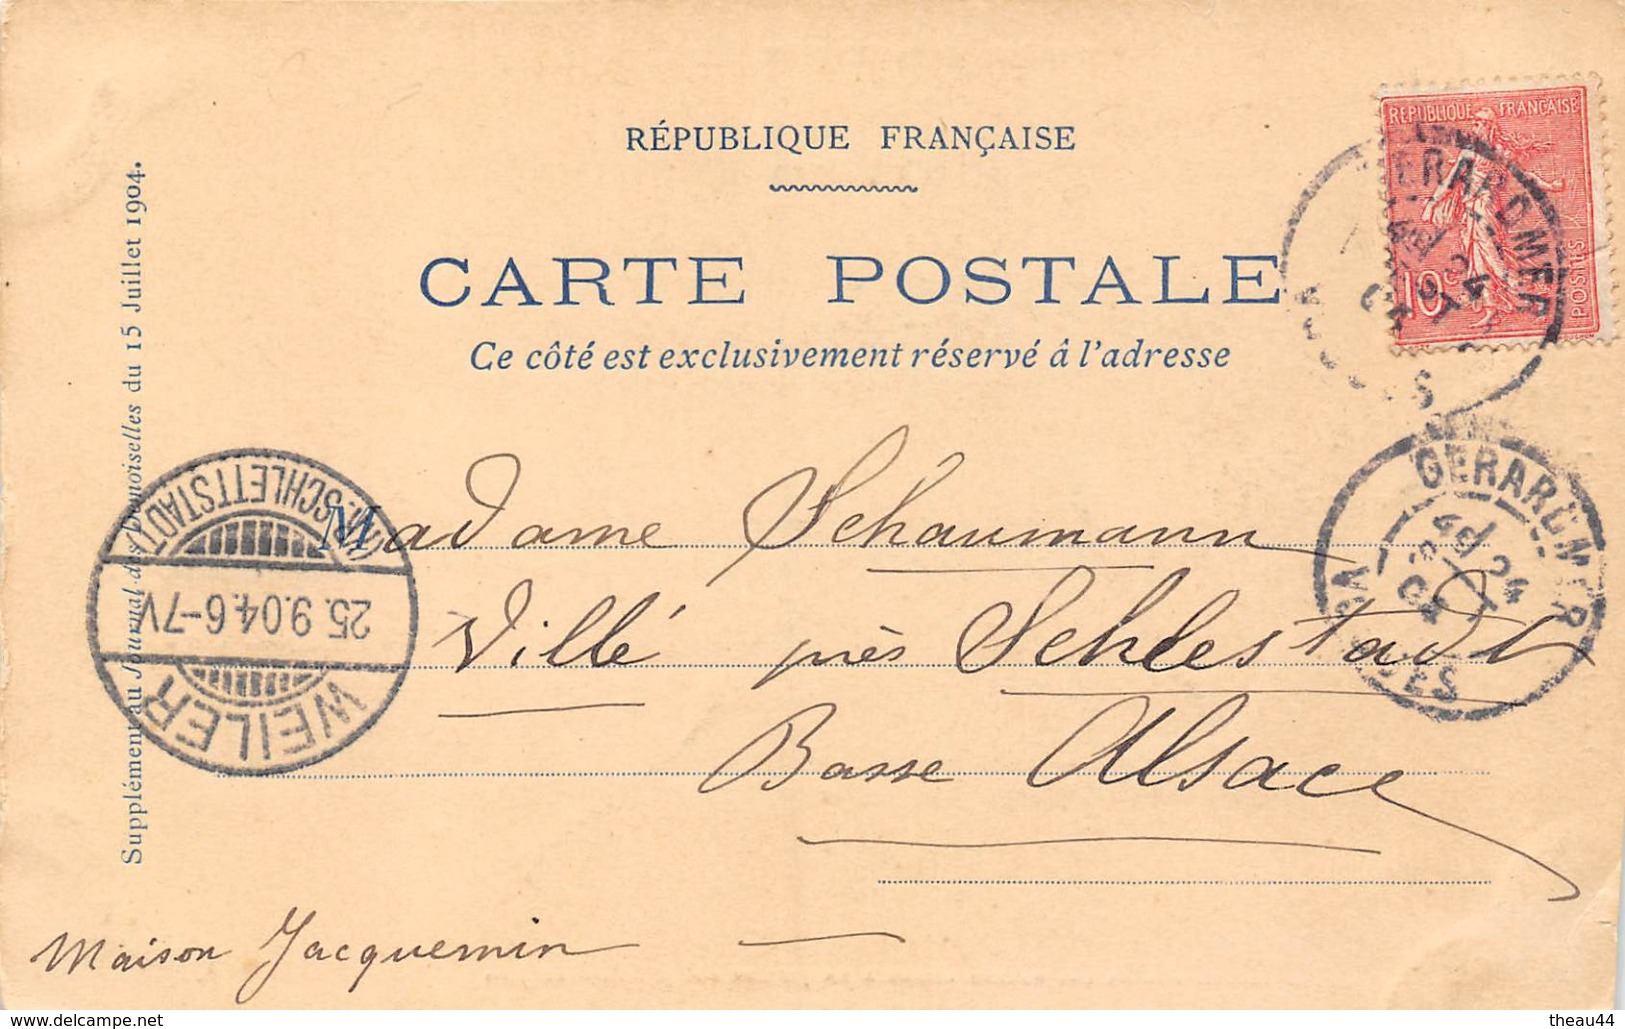 RÉPUBLIQUE FRANÇAISE
CARTE POSTALE
Ce côté est exclusivement réservé à l'adresse
Supplément au Journal des Demoiselles du 15 Juillet 1904.
REPUBLIQUE FRANÇAISE
10c
POSTES
GERARDMER
24
GERARDMER
24
04
VOSGES
SCHLETTSTADT
25.9.04.6-7V
WEILER
Madame Schaumann
Villé près Schlestadt
Basse Alsace
Maison Jacquemin
www.delcampe.net
theau44